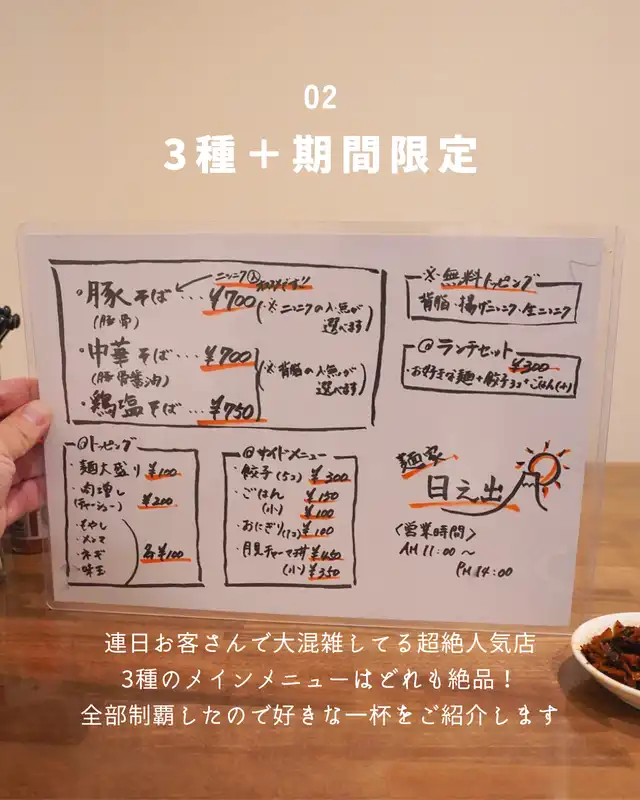 02
3種＋期間限定
・豚そば…¥700
ニンニク入
(豚骨)
(※ニンニクの入・無が
選べます)
・中華そば…¥700
(豚骨醤油)
(※背脂の入・無が
選べます)
・鶏塩そば…¥750
※無料トッピング
背脂・揚げニンニク・生ニンニク
@ランチセット
¥300
・お好きな麺+餃子3コ+ごはん(小)
@トッピング
・麺大盛り ¥100
・肉増し ¥200
(チャーシュー)
・もやし
・メンマ
・ネギ
・味玉
各¥100
@サイドメニュー
・餃子(5コ) ¥300
・ごはん ¥150
(小) ¥100
・おにぎり(1コ) ¥100
・月見チャーマヨ丼 ¥450
(小) ¥350
麺家
日之出
〈営業時間〉
AM 11:00 〜
PM 14:00
連日お客さんで大混雑してる超絶人気店
3種のメインメニューはどれも絶品！
全部制覇したので好きな一杯をご紹介します